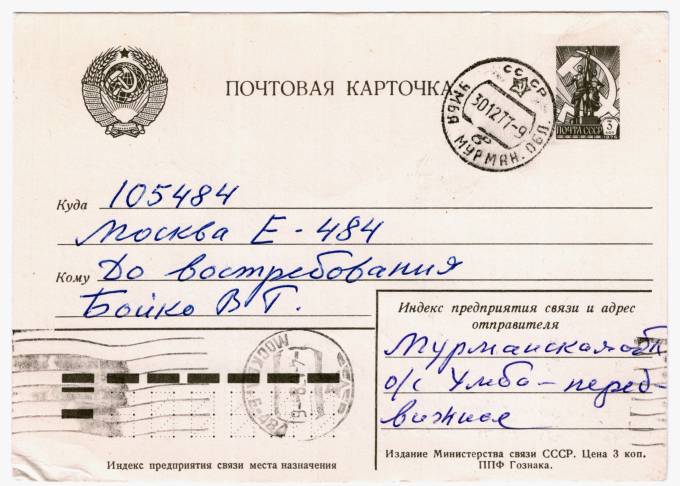 ПОЧТОВАЯ КАРТОЧКА
СССР
УМБА МУРМАН. ОБЛ.
301277-9
ПОЧТА СССР
3
Куда 105484
Москва Е-484
Кому До востребования
Бойко В Г.
Индекс предприятия связи и адрес
отправителя
Мурманская обл
о/с Умба - перед-
вижное
Индекс предприятия связи места назначения
Издание Министерства связи СССР. Цена 3 коп.
ППФ Гознака.